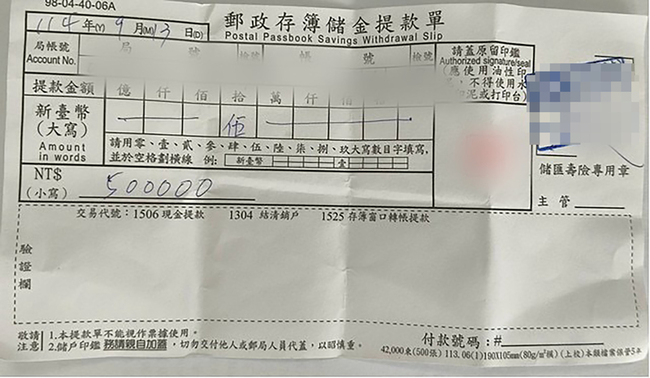 98-04-40-06A
114年(Y) 9月(M) 13日(D)
郵政存簿儲金提款單
Postal Passbook Savings Withdrawal Slip
局帳號 局 號 檢號 帳 號 檢號
Account No.
請蓋原留印鑑
Authorized signature/seal
(應使用油性印
不得使用水
泥或打印台)
提款金額 億 仟 佰 拾 萬 仟 佰 拾 元
新臺幣
(大寫) 伍
Amount
in words
請用零、壹、貳、參、肆、伍、陸、柒、捌、玖大寫數目字填寫,
並於空格劃橫線 例: 新臺幣 壹
NT$
(小寫) 500000
儲匯壽險專用章
主管
交易代號:1506 現金提款 1304 結清銷戶 1525 存簿窗口轉帳提款
驗證欄
敬請注意
1.本提款單不能視作票據使用。
2.儲戶印鑑 務請親自加蓋,切勿交付他人或郵局人員代蓋,以昭慎重。
付款號碼:#
42,000束(500張) 113.06(1)190X105mm(80g/m²模)(上校)本類檔案保管5年